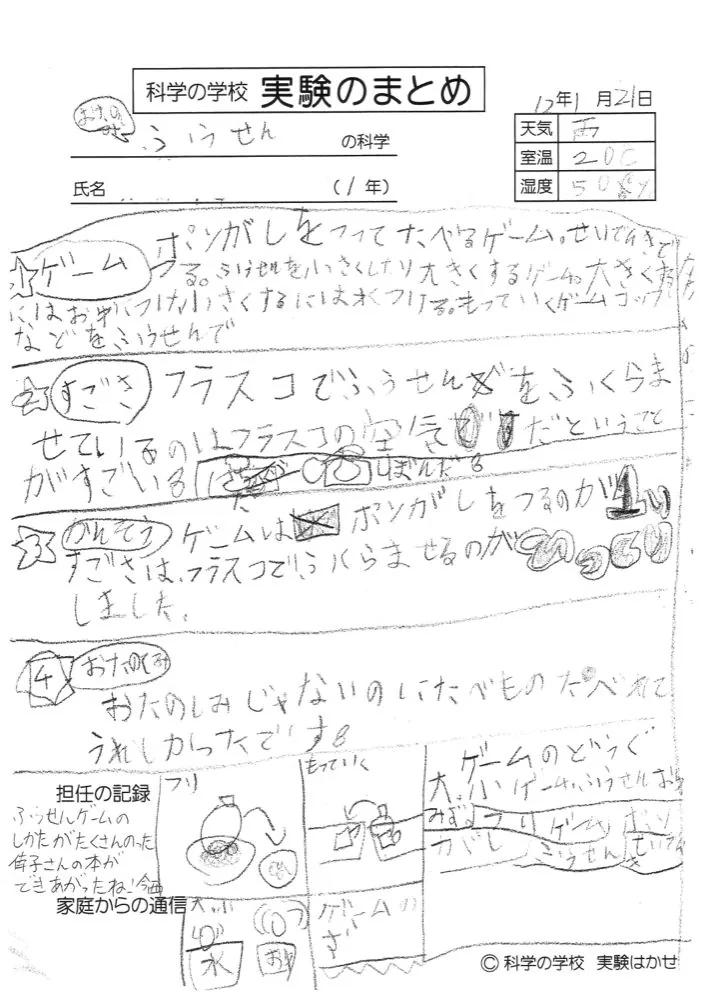 科学の学校 実験のまとめ
12年1月21日
おたのしみ ふうせん の科学
天気 雨
室温 20℃
湿度 50%
氏名 (1年)
1 ゲーム ポンがしをつってたべるゲーム。せいでんきで
つる。ふうせんを小さくしたり大きくするゲーム。大きくする
にはお湯につけ小さくするには水につける。もっていくゲームコップ
などをふうせんで
2 すごさ フラスコでふうせんをふくらま
せているのはフラスコの空気だということ
がすごい。
しぼんだ。
3 かんそう ゲームは ポンがしをつるのが1い
すごさは、フラスコでふくらませるのがびっくり
しました。
4 おたのしみ
おたのしみじゃないのにたべものたべれて
うれしかったです。
担任の記録
ふうせんゲームの
しかたがたくさんのった
倖子さんの本が
できあがったね!今西
家庭からの通信
フリ
もっていく
ゲームのどうぐ
大、小ゲーム、ふうせんお湯
みず つりゲーム ポン
がし ふうせん せいでんき
大小
水
お湯
ゲームの
© 科学の学校 実験はかせ